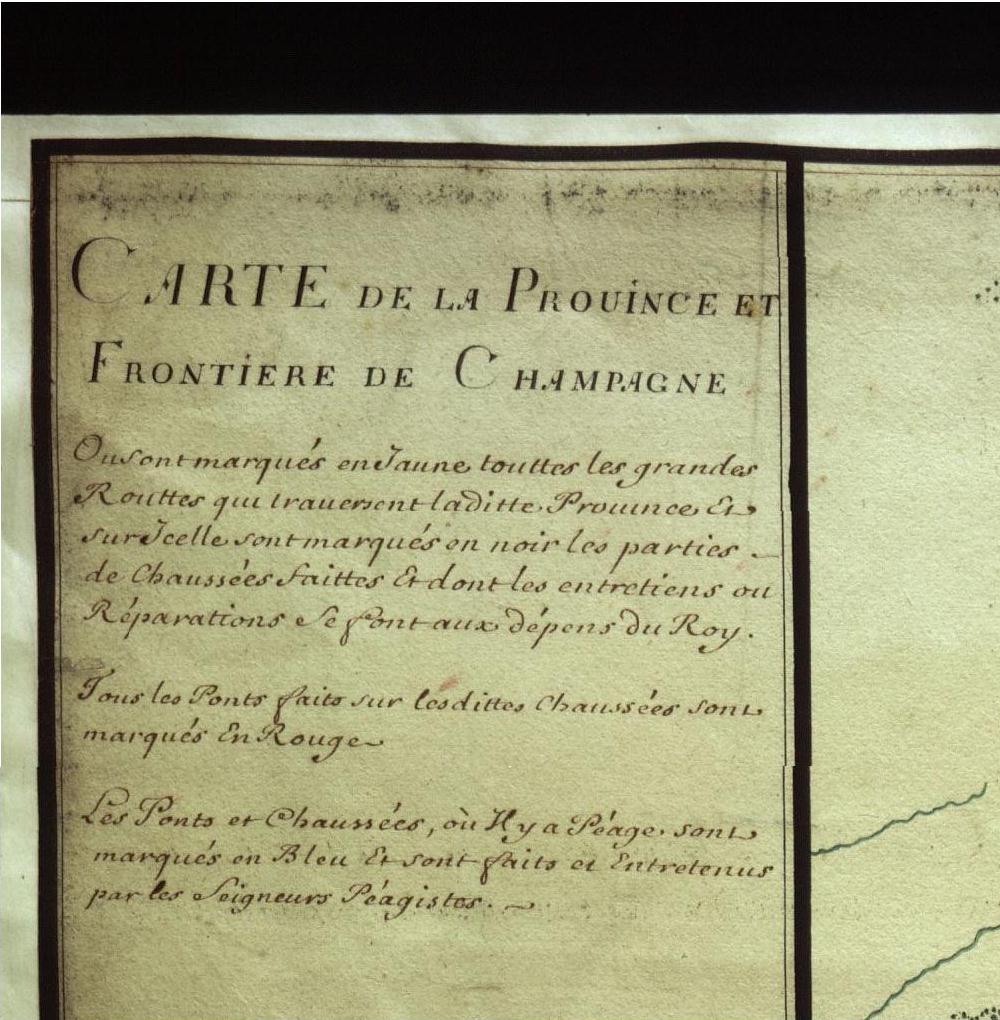 CARTE DE LA PROUINCE ET
FRONTIERE DE CHAMPAGNE
Ou sont marqués en Jaune touttes les grandes
Routtes qui trauersent laditte Prouince Et
sur Jcelle sont marqués en noir les parties
de Chaussées faittes Et dont les entretiens ou
Réparations Se font aux dépens du Roy.
Tous les Ponts faits sur lesdittes Chaussées sont
marqués En Rouge
Les Ponts et Chaussées, où Il y a Péage sont
marqués en Bleu Et sont faits et Entretenus
par les Seigneurs Péagistes.